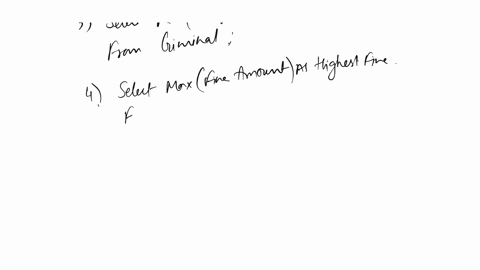 3) Select
From Criminal;
4) Select Max(Fine Amount) As Highest Fine.
F